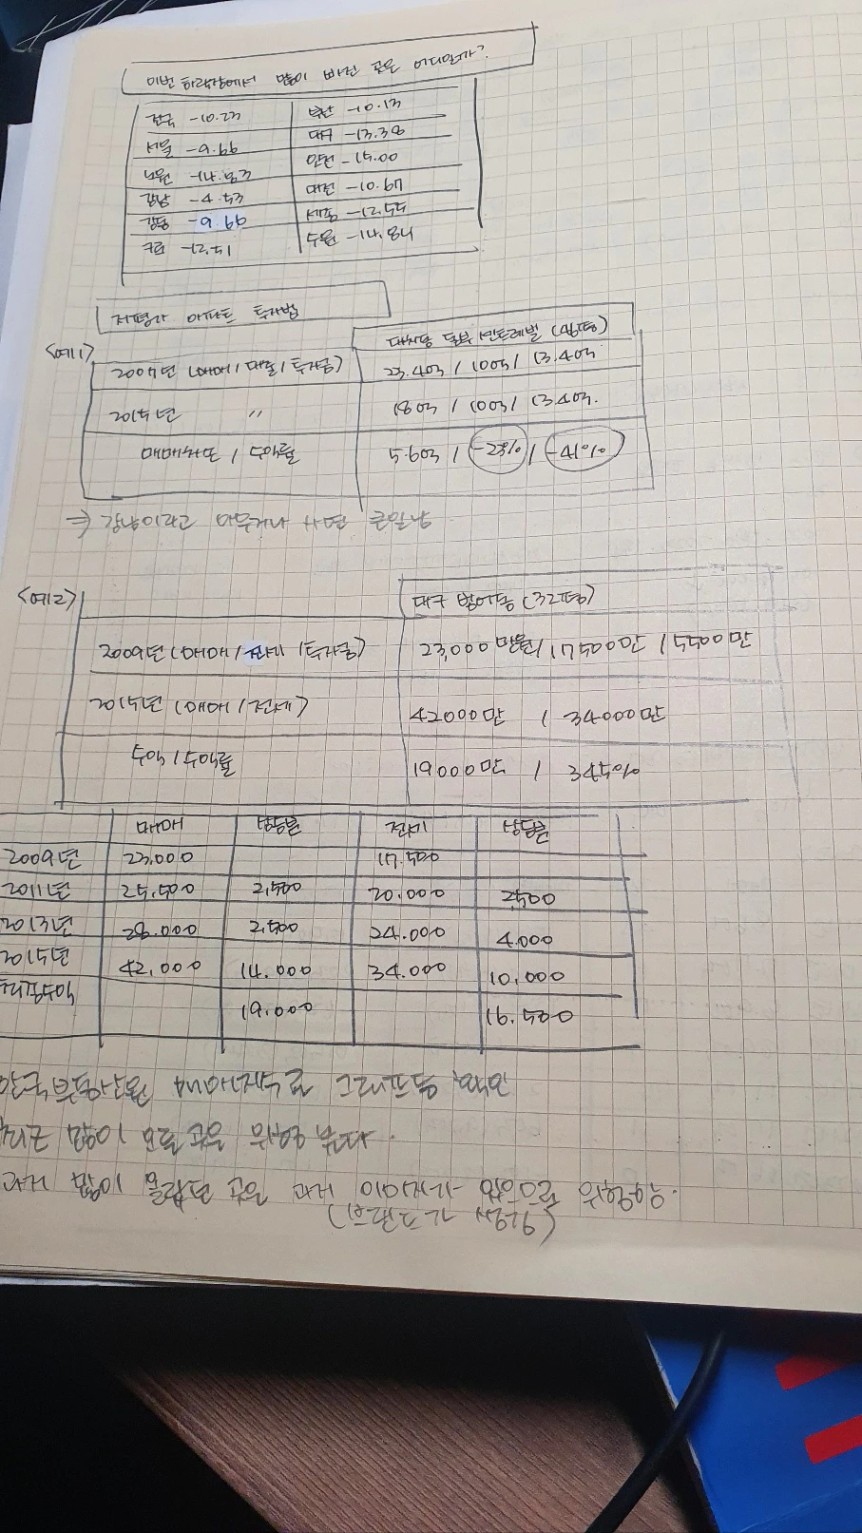 이번 하락장에서 많이 빠진 곳은 어디일까?
전국 -10.23 부산 -10.13
서울 -9.66 대구 -13.38
노원 -14.83 인천 -15.00
강남 -4.53 대전 -10.67
강동 -9.66 세종 -12.55
구로 -12.51 수원 -14.84
저평가 아파트 투자법
<예1> 대치동 동부센트레빌 (46평)
2007년 (매매/대출/투자금) 23.4억 / 10억 / 13.4억
2015년 〃 18억 / 10억 / 13.4억.
매매차도 / 수익률 5.6억 / -23% / -41%
⇒ 강남이라고 아무거나 사면 큰일남
<예2> 대구 범어동 (32평)
2009년 (매매 / 전세 / 투자금) 23,000만원/ 17500만 / 5500만
2015년 (매매 / 전세) 42000만 / 34000만
수익 / 수익률 19000만 / 345%
매매 상승분 전세 상승분
2009년 23,000 17.500
2011년 25,500 2,500 20.000 2,500
2013년 28.000 2,500 24.000 4.000
2015년 42,000 14.000 34.000 10,000
최종수익 19.000 16.500
한국부동산원 매매지수로 그래프등 확인
최근 많이 오른 곳은 위험 부담.
과거 많이 올랐던 곳은 과거 이미지가 있으므로 위험하능.
(브랜드가 생김)